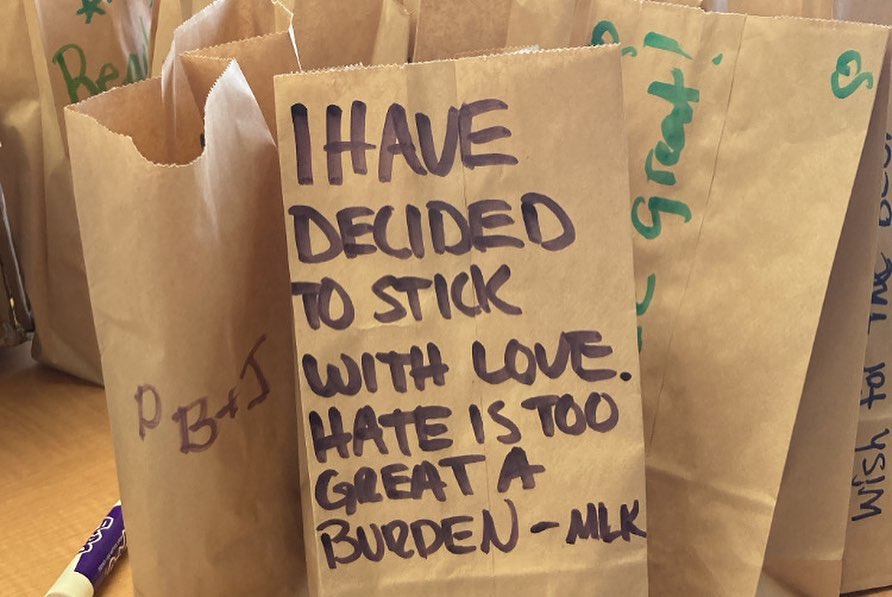 I HAVE
DECIDED
TO STICK
WITH LOVE.
HATE IS TOO
GREAT A
BURDEN - MLK
P B+J
Great!
Wish for the